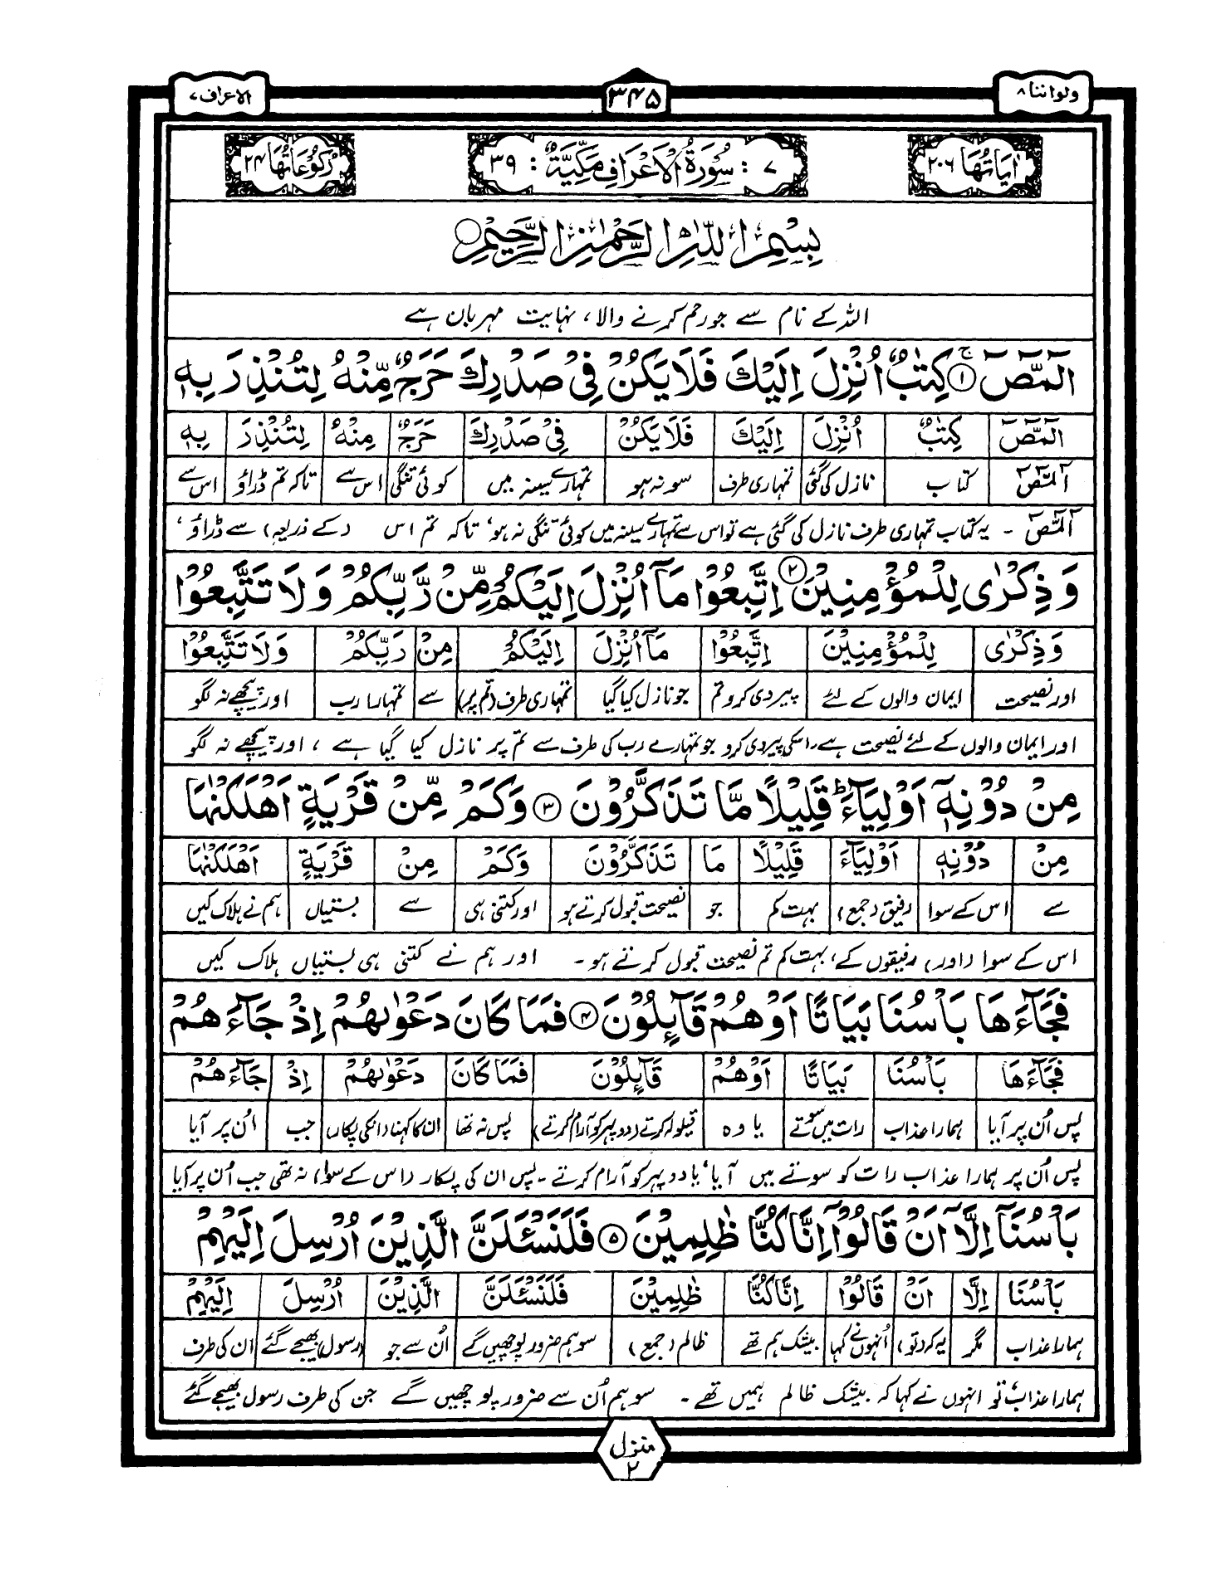 ولواننا ۸ ۳۴۵ الاعراف ۷
اٰيَاتُهَا ۲۰۶ ۷ : سُوْرَةُ الْاَعْرَافِ مَكِّيَّةٌ : ۳۹ رُكُوْعَاتُهَا ۲۴
بِسْمِ اللّٰهِ الرَّحْمٰنِ الرَّحِيْمِ
اللہ کے نام سے جو رحم کرنے والا، نہایت مہربان ہے
الٓمّٓصٓ ۚ۱ كِتٰبٌ اُنْزِلَ اِلَيْكَ فَلَا يَكُنْ فِيْ صَدْرِكَ حَرَجٌ مِّنْهُ لِتُنْذِرَ بِهٖ
الٓمّٓصٓ كِتٰبٌ اُنْزِلَ اِلَيْكَ فَلَا يَكُنْ فِيْ صَدْرِكَ حَرَجٌ مِنْهُ لِتُنْذِرَ بِهٖ
الٓمّٓصٓ کتاب نازل کی گئی تمہاری طرف سو نہ ہو تمہارے سینہ میں کوئی تنگی اس سے تاکہ تم ڈراؤ اس سے
الٓمّٓصٓ - یہ کتاب تمہاری طرف نازل کی گئی ہے تو اس سے تمہارے سینہ میں کوئی تنگی نہ ہو، تاکہ تم اس (کے ذریعہ) سے ڈراؤ،
وَ ذِكْرٰى لِلْمُؤْمِنِيْنَ ۲ اِتَّبِعُوْا مَآ اُنْزِلَ اِلَيْكُمْ مِّنْ رَّبِّكُمْ وَ لَا تَتَّبِعُوْا
وَ ذِكْرٰى لِلْمُؤْمِنِيْنَ اِتَّبِعُوْا مَآ اُنْزِلَ اِلَيْكُمْ مِنْ رَبِّكُمْ وَلَا تَتَّبِعُوْا
اور نصیحت ایمان والوں کے لئے پیروی کرو تم جو نازل کیا گیا تمہاری طرف (تم پر) سے تمہارا رب اور پیچھے نہ لگو
اور ایمان والوں کے لئے نصیحت ہے، اسکی پیروی کرو جو تمہارے رب کی طرف سے تم پر نازل کیا گیا ہے ، اور پیچھے نہ لگو
مِنْ دُوْنِهٖٓ اَوْلِيَآءَ ؕ قَلِيْلًا مَّا تَذَكَّرُوْنَ ۳ وَكَمْ مِّنْ قَرْيَةٍ اَهْلَكْنٰهَا
مِنْ دُوْنِهٖٓ اَوْلِيَآءَ قَلِيْلًا مَا تَذَكَّرُوْنَ وَكَمْ مِنْ قَرْيَةٍ اَهْلَكْنٰهَا
سے اس کے سوا رفیق (جمع) بہت کم جو نصیحت قبول کرتے ہو اور کتنی ہی سے بستیاں ہم نے ہلاک کیں
اس کے سوا (اور) رفیقوں کے، بہت کم تم نصیحت قبول کرتے ہو - اور ہم نے کتنی ہی بستیاں ہلاک کیں
فَجَآءَهَا بَاْسُنَا بَيَاتًا اَوْ هُمْ قَآئِلُوْنَ ۴ فَمَا كَانَ دَعْوٰىهُمْ اِذْ جَآءَهُمْ
فَجَآءَهَا بَاْسُنَا بَيَاتًا اَوْ هُمْ قَآئِلُوْنَ فَمَا كَانَ دَعْوٰىهُمْ اِذْ جَآءَهُمْ
پس اُن پر آیا ہمارا عذاب رات میں سوتے یا وہ قیلولہ کرتے (دوپہر کو آرام کرتے) پس نہ تھا ان کا کہنا (انکی پکار) جب اُن پر آیا
پس اُن پر ہمارا عذاب رات کو سوتے میں آیا، یا دوپہر کو آرام کرتے - پس ان کی پکار (اس کے سوا) نہ تھی جب اُن پر آیا
بَاْسُنَآ اِلَّآ اَنْ قَالُوْٓا اِنَّا كُنَّا ظٰلِمِيْنَ ۵ فَلَنَسْـَٔلَنَّ الَّذِيْنَ اُرْسِلَ اِلَيْهِمْ
بَاْسُنَا اِلَّا اَنْ قَالُوْٓا اِنَّا كُنَّا ظٰلِمِيْنَ فَلَنَسْـَٔلَنَّ الَّذِيْنَ اُرْسِلَ اِلَيْهِمْ
ہمارا عذاب مگر یہ کہ (تو) اُنہوں نے کہا بیشک ہم تھے ظالم (جمع) سو ہم ضرور پوچھیں گے اُن سے جو (رسول) بھیجے گئے ان کی طرف
ہمارا عذاب تو انہوں نے کہا کہ بیشک ظالم ہمیں تھے - سو ہم اُن سے ضرور پوچھیں گے جن کی طرف رسول بھیجے گئے
منزل ۲